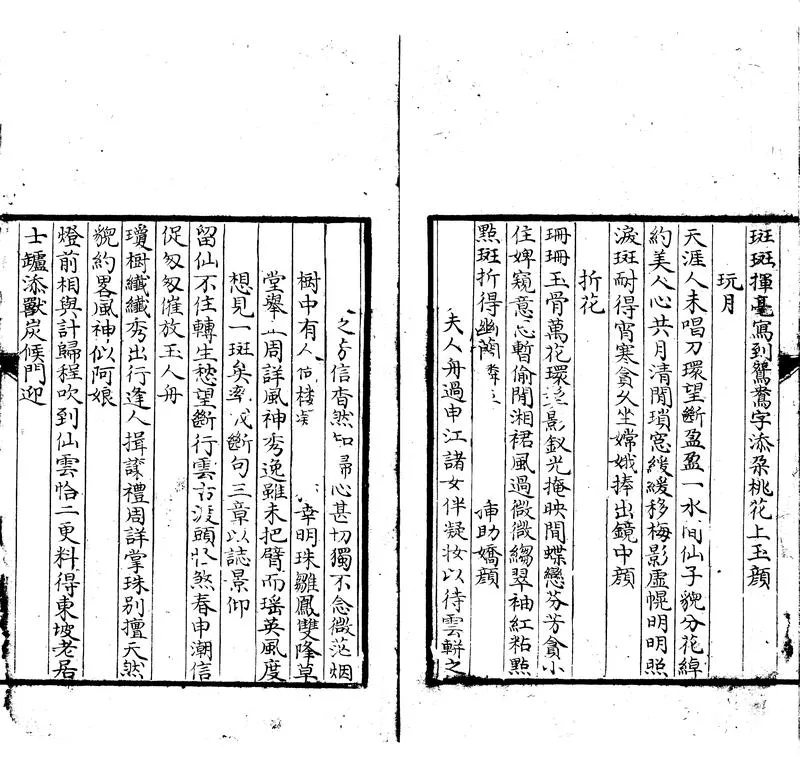 斑斑揮毫寫到鴛鴦字添朶桃花上玉顔
玩月
天涯人未唱刀環望斷盈盈一水间仙子貌分花綽
約美人心共月清閒瑣窓緩緩移梅影虚幌明明照
淚斑耐得宵寒貪久坐嫦娥捧出鏡中顔
折花
珊珊玉骨萬花環影釵光掩映間蝶戀芬芳貪小
住婢窺意態暫偷閒湘裙風過微微縐翠袖紅粘點
㸃斑折得幽蘭助嬌顔
夫人舟過申江諸女伴凝妝以待雲軿之
信杳然知歸心甚切獨不念微茫烟
樹中有人明珠雛鳳雙降草
堂舉止周詳風神秀逸雖未把臂而瑶英風度
想見一斑矣率成斷句三章以誌景仰
留仙不住轉生愁望斷行雲古渡頭忙煞春申潮信
促匆匆催放玉人舟
瓊樹纖纖秀出行逢人揖讓禮周詳掌珠别擅天然
貌約畧風神似阿娘
燈前相與計歸程吹到仙雲恰二更料得東坡老居
士罏添獸炭候門迎